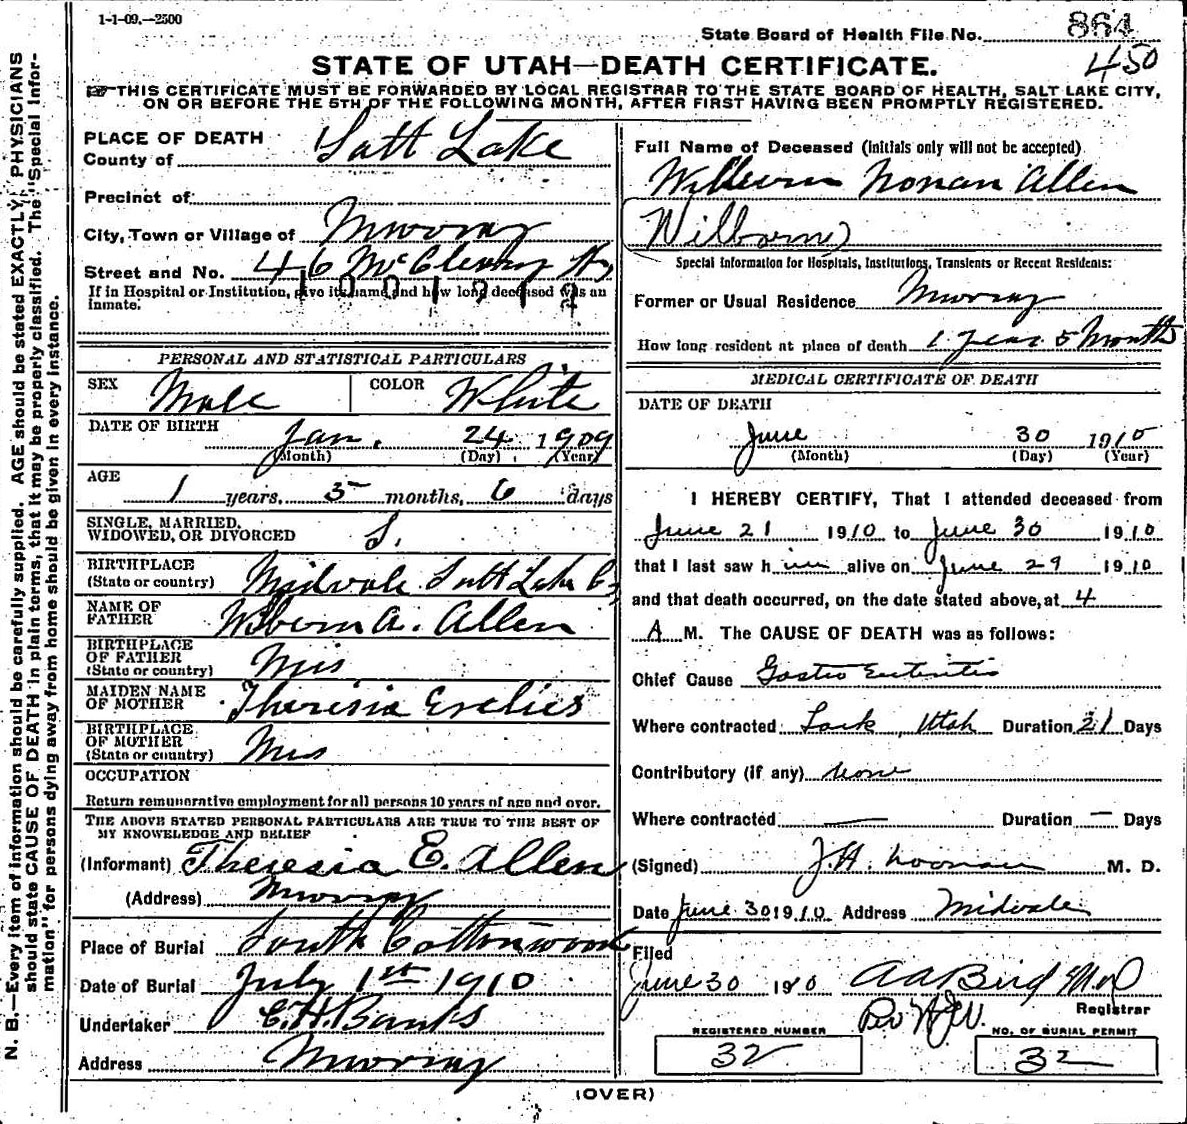 1-1-09.—2500
State Board of Health File No. 864
450
STATE OF UTAH—DEATH CERTIFICATE.
THIS CERTIFICATE MUST BE FORWARDED BY LOCAL REGISTRAR TO THE STATE BOARD OF HEALTH, SALT LAKE CITY,
ON OR BEFORE THE 5TH OF THE FOLLOWING MONTH, AFTER FIRST HAVING BEEN PROMPTLY REGISTERED.
N. B.—Every item of information should be carefully supplied. AGE should be stated EXACTLY. PHYSICIANS
should state CAUSE OF DEATH in plain terms, that it may be properly classified. The "Special Infor-
mation" for persons dying away from home should be given in every instance.
PLACE OF DEATH
County of Salt Lake
Precinct of
City, Town or Village of Murray
Street and No. 46 McCleary
If in Hospital or Institution, give its name and how long deceased was an
inmate.
PERSONAL AND STATISTICAL PARTICULARS
SEX Male COLOR White
DATE OF BIRTH
Jan. 24 1909
(Month) (Day) (Year)
AGE
1 years, 5 months, 6 days
SINGLE, MARRIED,
WIDOWED, OR DIVORCED S.
BIRTHPLACE
(State or country) Midvale Salt Lake Co
NAME OF
FATHER Wilborn A. Allen
BIRTHPLACE
OF FATHER
(State or country) Mis
MAIDEN NAME
OF MOTHER Theresia
BIRTHPLACE
OF MOTHER
(State or country) Mis
OCCUPATION
Return remunerative employment for all persons 10 years of age and over.
THE ABOVE STATED PERSONAL PARTICULARS ARE TRUE TO THE BEST OF
MY KNOWLEDGE AND BELIEF
(Informant) Theresia E. Allen
(Address) Murray
Place of Burial South Cottonwood
Date of Burial July 1st 1910
Undertaker C. H. Banks
Address Murray
Full Name of Deceased (Initials only will not be accepted)
Wilburn Nonan Allen
Wilborn)
Special Information for Hospitals, Institutions, Transients or Recent Residents:
Former or Usual Residence Murray
How long resident at place of death 1 year 5 Months
MEDICAL CERTIFICATE OF DEATH
DATE OF DEATH
June 30 1910
(Month) (Day) (Year)
I HEREBY CERTIFY, That I attended deceased from
June 21 1910 to June 30 1910
that I last saw him alive on June 29 1910
and that death occurred, on the date stated above, at 4
A M. The CAUSE OF DEATH was as follows:
Chief Cause Gastro Enteritis
Where contracted Utah Duration 21 Days
Contributory (if any) None
Where contracted — Duration — Days
(Signed) J. H. M. D.
Date June 30 1910 Address Midvale
Filed
June 30 1910 A A Bird M D
Registrar
Per
REGISTERED NUMBER NO. OF BURIAL PERMIT
32 32
(OVER)